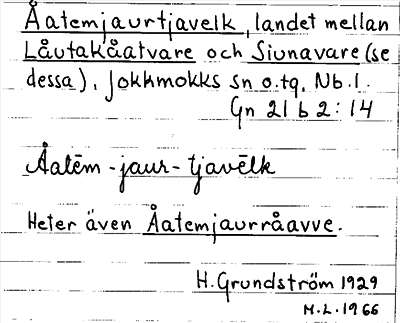 Åatemjaurtjavelk, landet mellan
Låutakåatvare och Siunavare (se
dessa), Jokkmokks sn o. tg, Nb. l.
Gn 21 b 2:14
Åatēm-jaur-tjavēlk
Heter även Åatemjaurråavve.
H. Grundström 1929
M.L. 1966